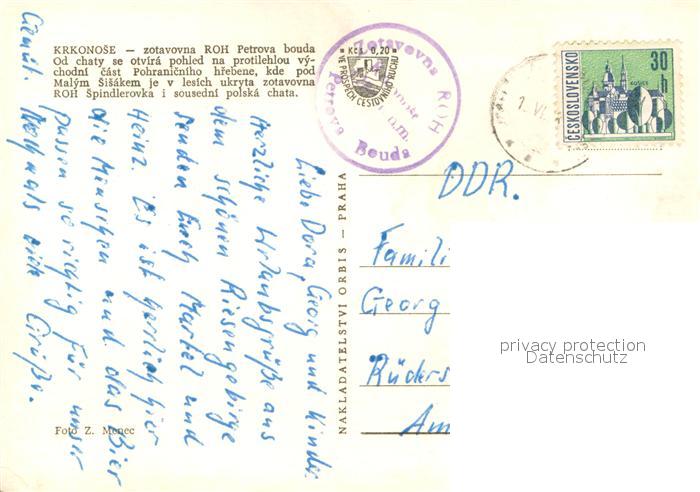 KRKONOŠE — zotavovna ROH Petrova bouda
Od chaty se otvírá pohled na protilehlou vý-
chodní část Pohraničního hřebene, kde pod
Malým Šišákem je v lesích ukryta zotavovna
ROH Špindlerovka i sousední polská chata.
Kčs 0,20
VE PROSPĚCH CESTOVNÍHO RUCHU
Zotavovna ROH
Petrova Bouda
ČESKOSLOVENSKO
30 h
KOŠICE
1. VI.
Liebe Dora, Georg und Kinder
Herzliche Urlaubsgrüße aus
dem schönen Riesengebirge
senden Euch Martel und
Heinz. Es ist herrlich hier
die Menschen und das Bier
passen so richtig für unser
Gemüt. Nochmals viele Grüße.
NAKLADATELSTVÍ ORBIS — PRAHA
DDR.
Famili
Georg
Rüders
Am
privacy protection
Datenschutz
Foto Z. Menec